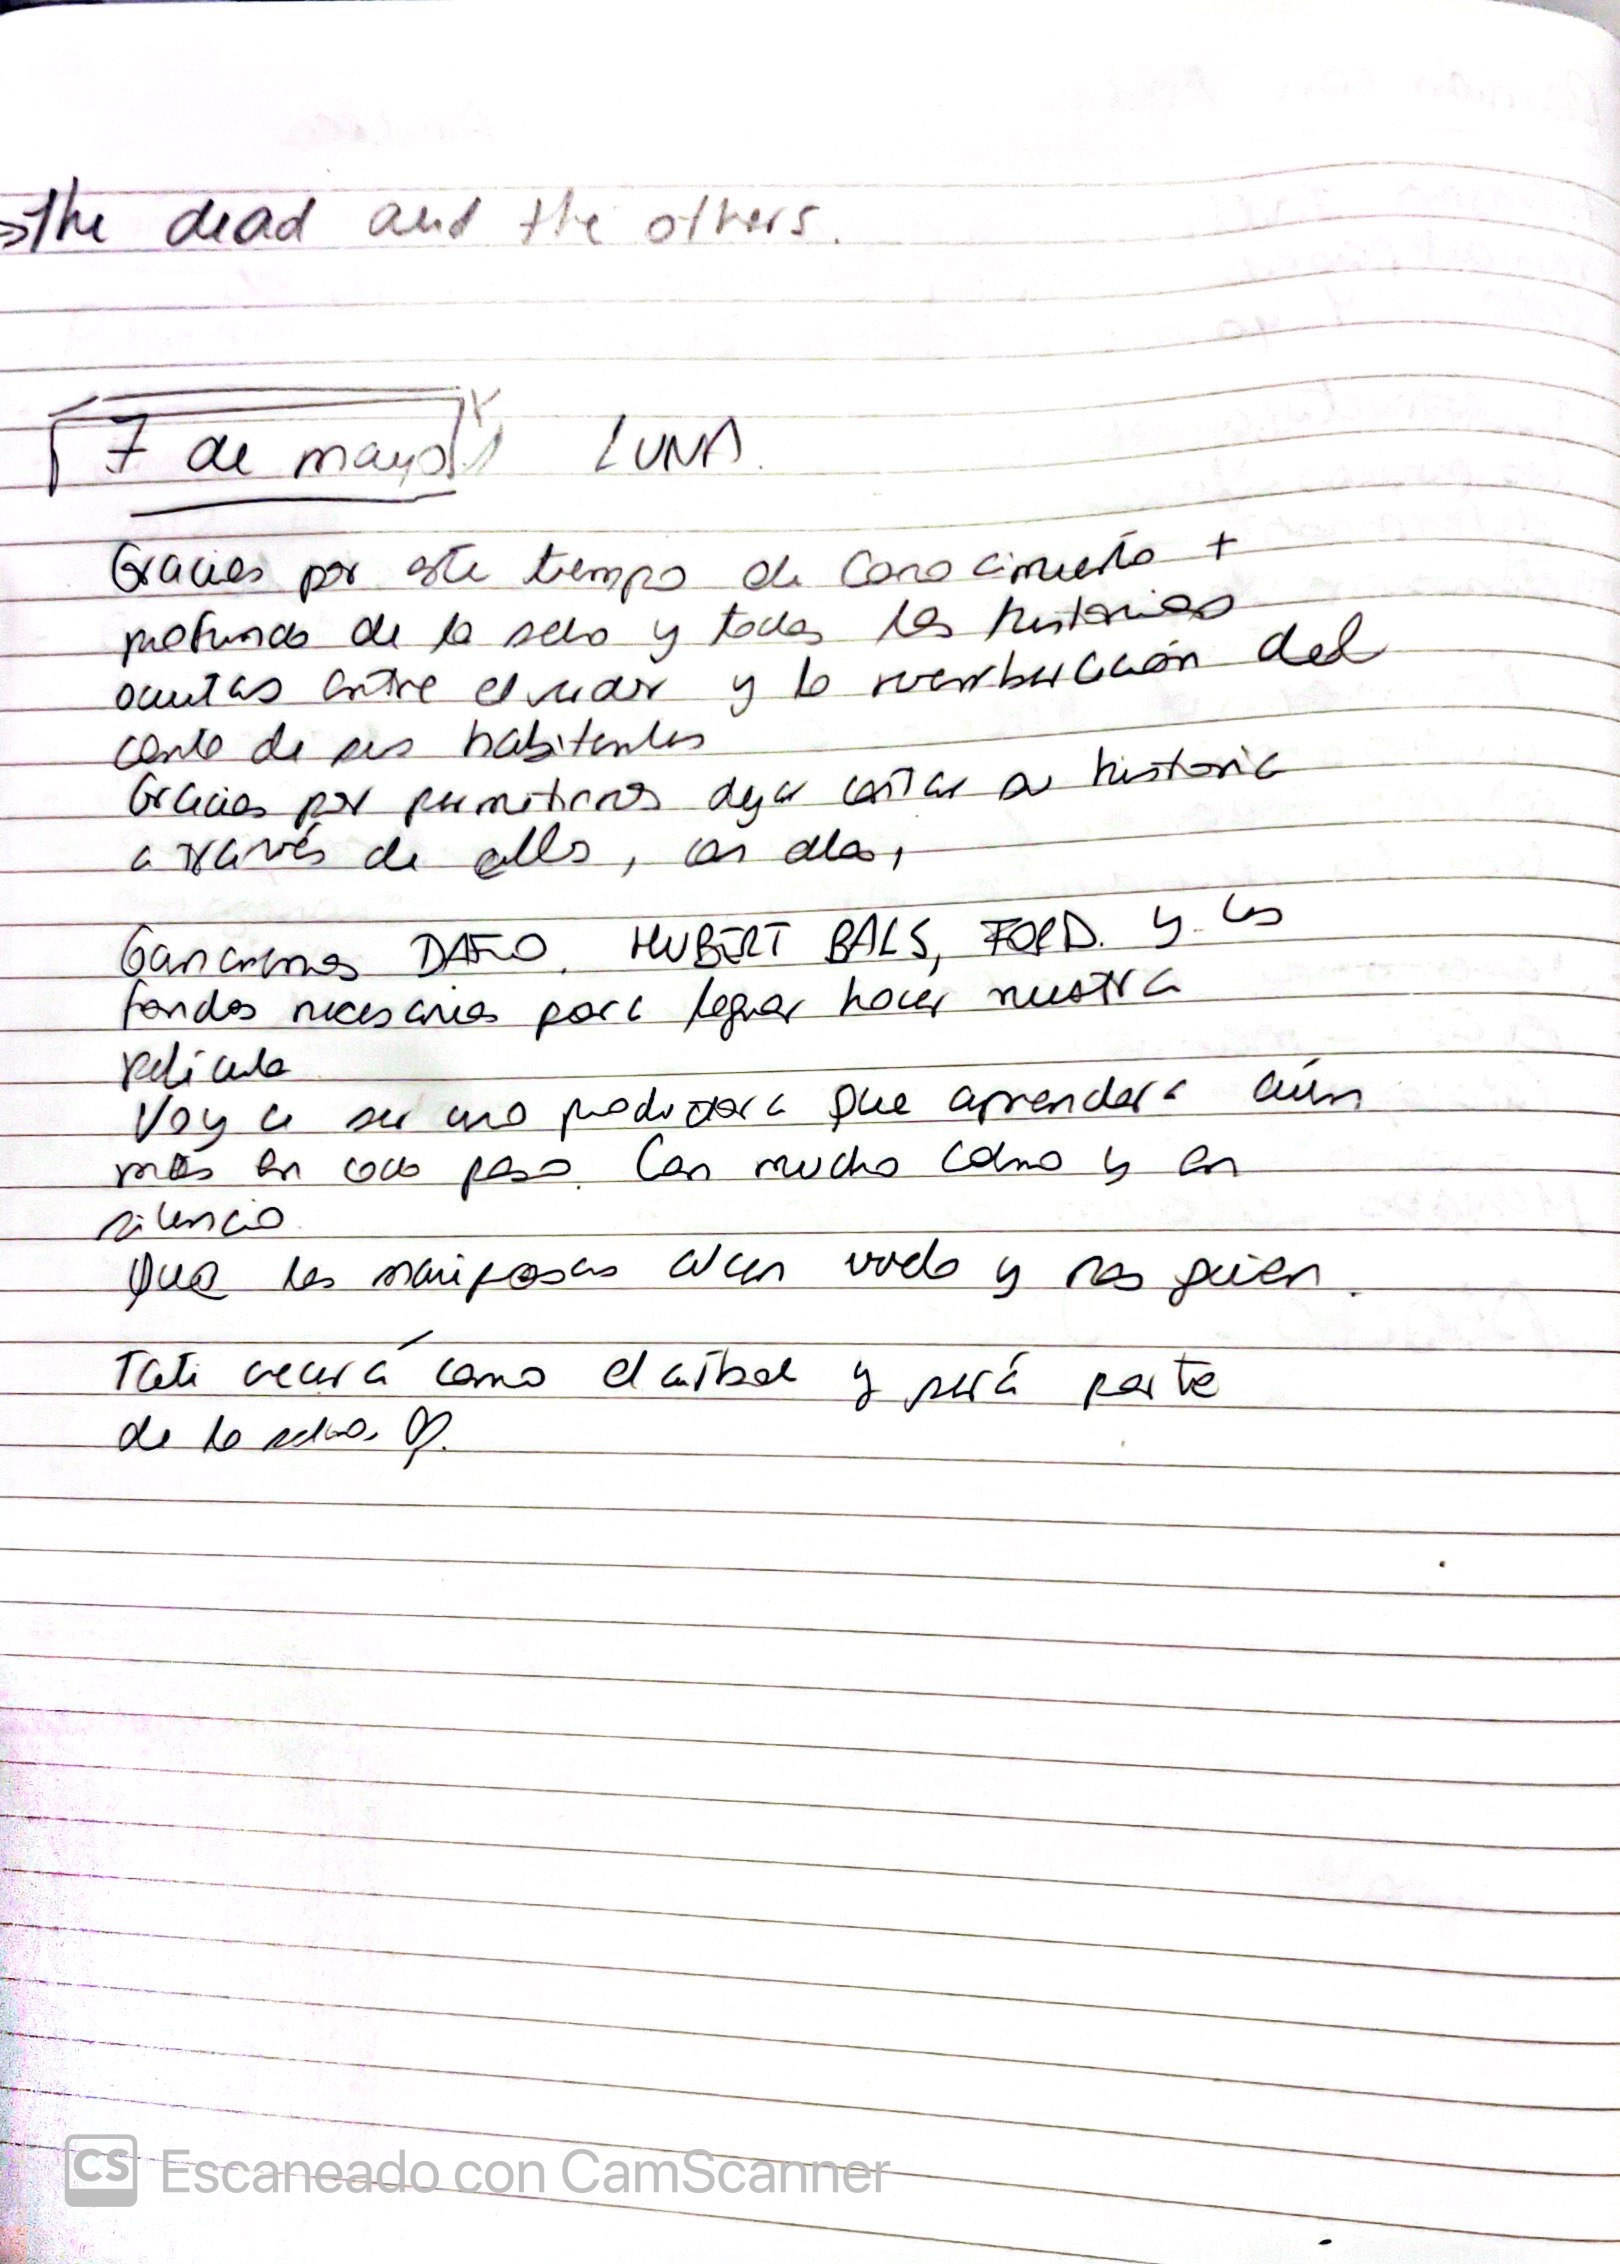 → the dead and the others.
7 de mayo LUNA.
Gracias por este tiempo de conocimiento +
profundo de la selva y todas las historias
ocultas entre el y la reverberación del
canto de sus habitantes
Gracias por permitirnos dejar contar su historia
a través de ellos, con ellos,
Ganaremos DAFO. HUBERT BALS, FORD. y los
fondos necesarios para lograr hacer nuestra
película
Voy a ser una productora que aprenderá aún
más en cada paso. Con mucha calma y en
silencio
Que las mariposas alcen vuelo y nos guíen.
Tati crecerá como el árbol y será parte
de la selva ♡.
CS Escaneado con CamScanner